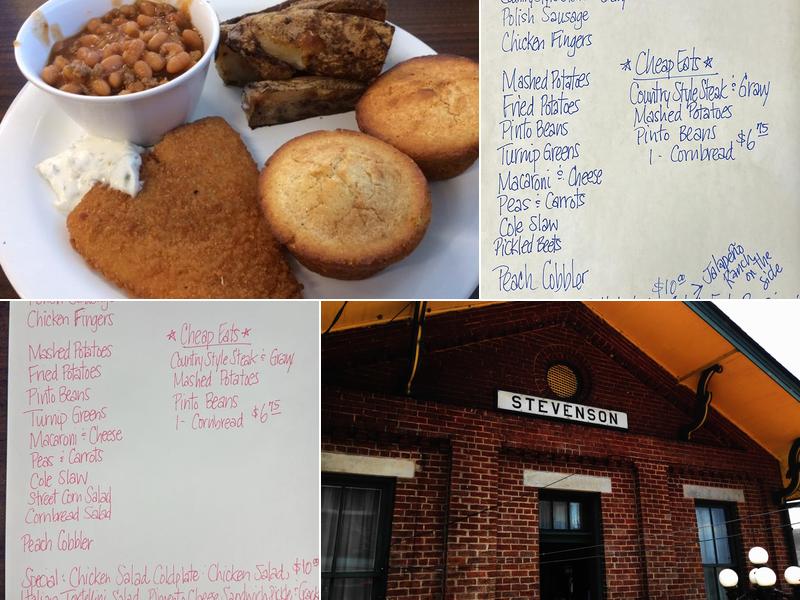 Polish Sausage
Chicken Fingers
Mashed Potatoes
Fried Potatoes
Pinto Beans
Turnip Greens
Macaroni & Cheese
Peas & Carrots
Cole Slaw
Pickled Beets
Peach Cobbler
* Cheap Eats *
Country Style Steak & Gravy
Mashed Potatoes
Pinto Beans
1 - Cornbread $6.75
$10.00 > Jalapeño
Ranch
on the
Side
Chicken Fingers
Mashed Potatoes
Fried Potatoes
Pinto Beans
Turnip Greens
Macaroni & Cheese
Peas & Carrots
Cole Slaw
Street Corn Salad
Cornbread Salad
Peach Cobbler
* Cheap Eats *
Country Style Steak & Gravy
Mashed Potatoes
Pinto Beans
1 - Cornbread $6.75
Special: Chicken Salad Coldplate: Chicken Salad, $10
Italian Tortellini Salad, Pimento Cheese Sandwich
STEVENSON